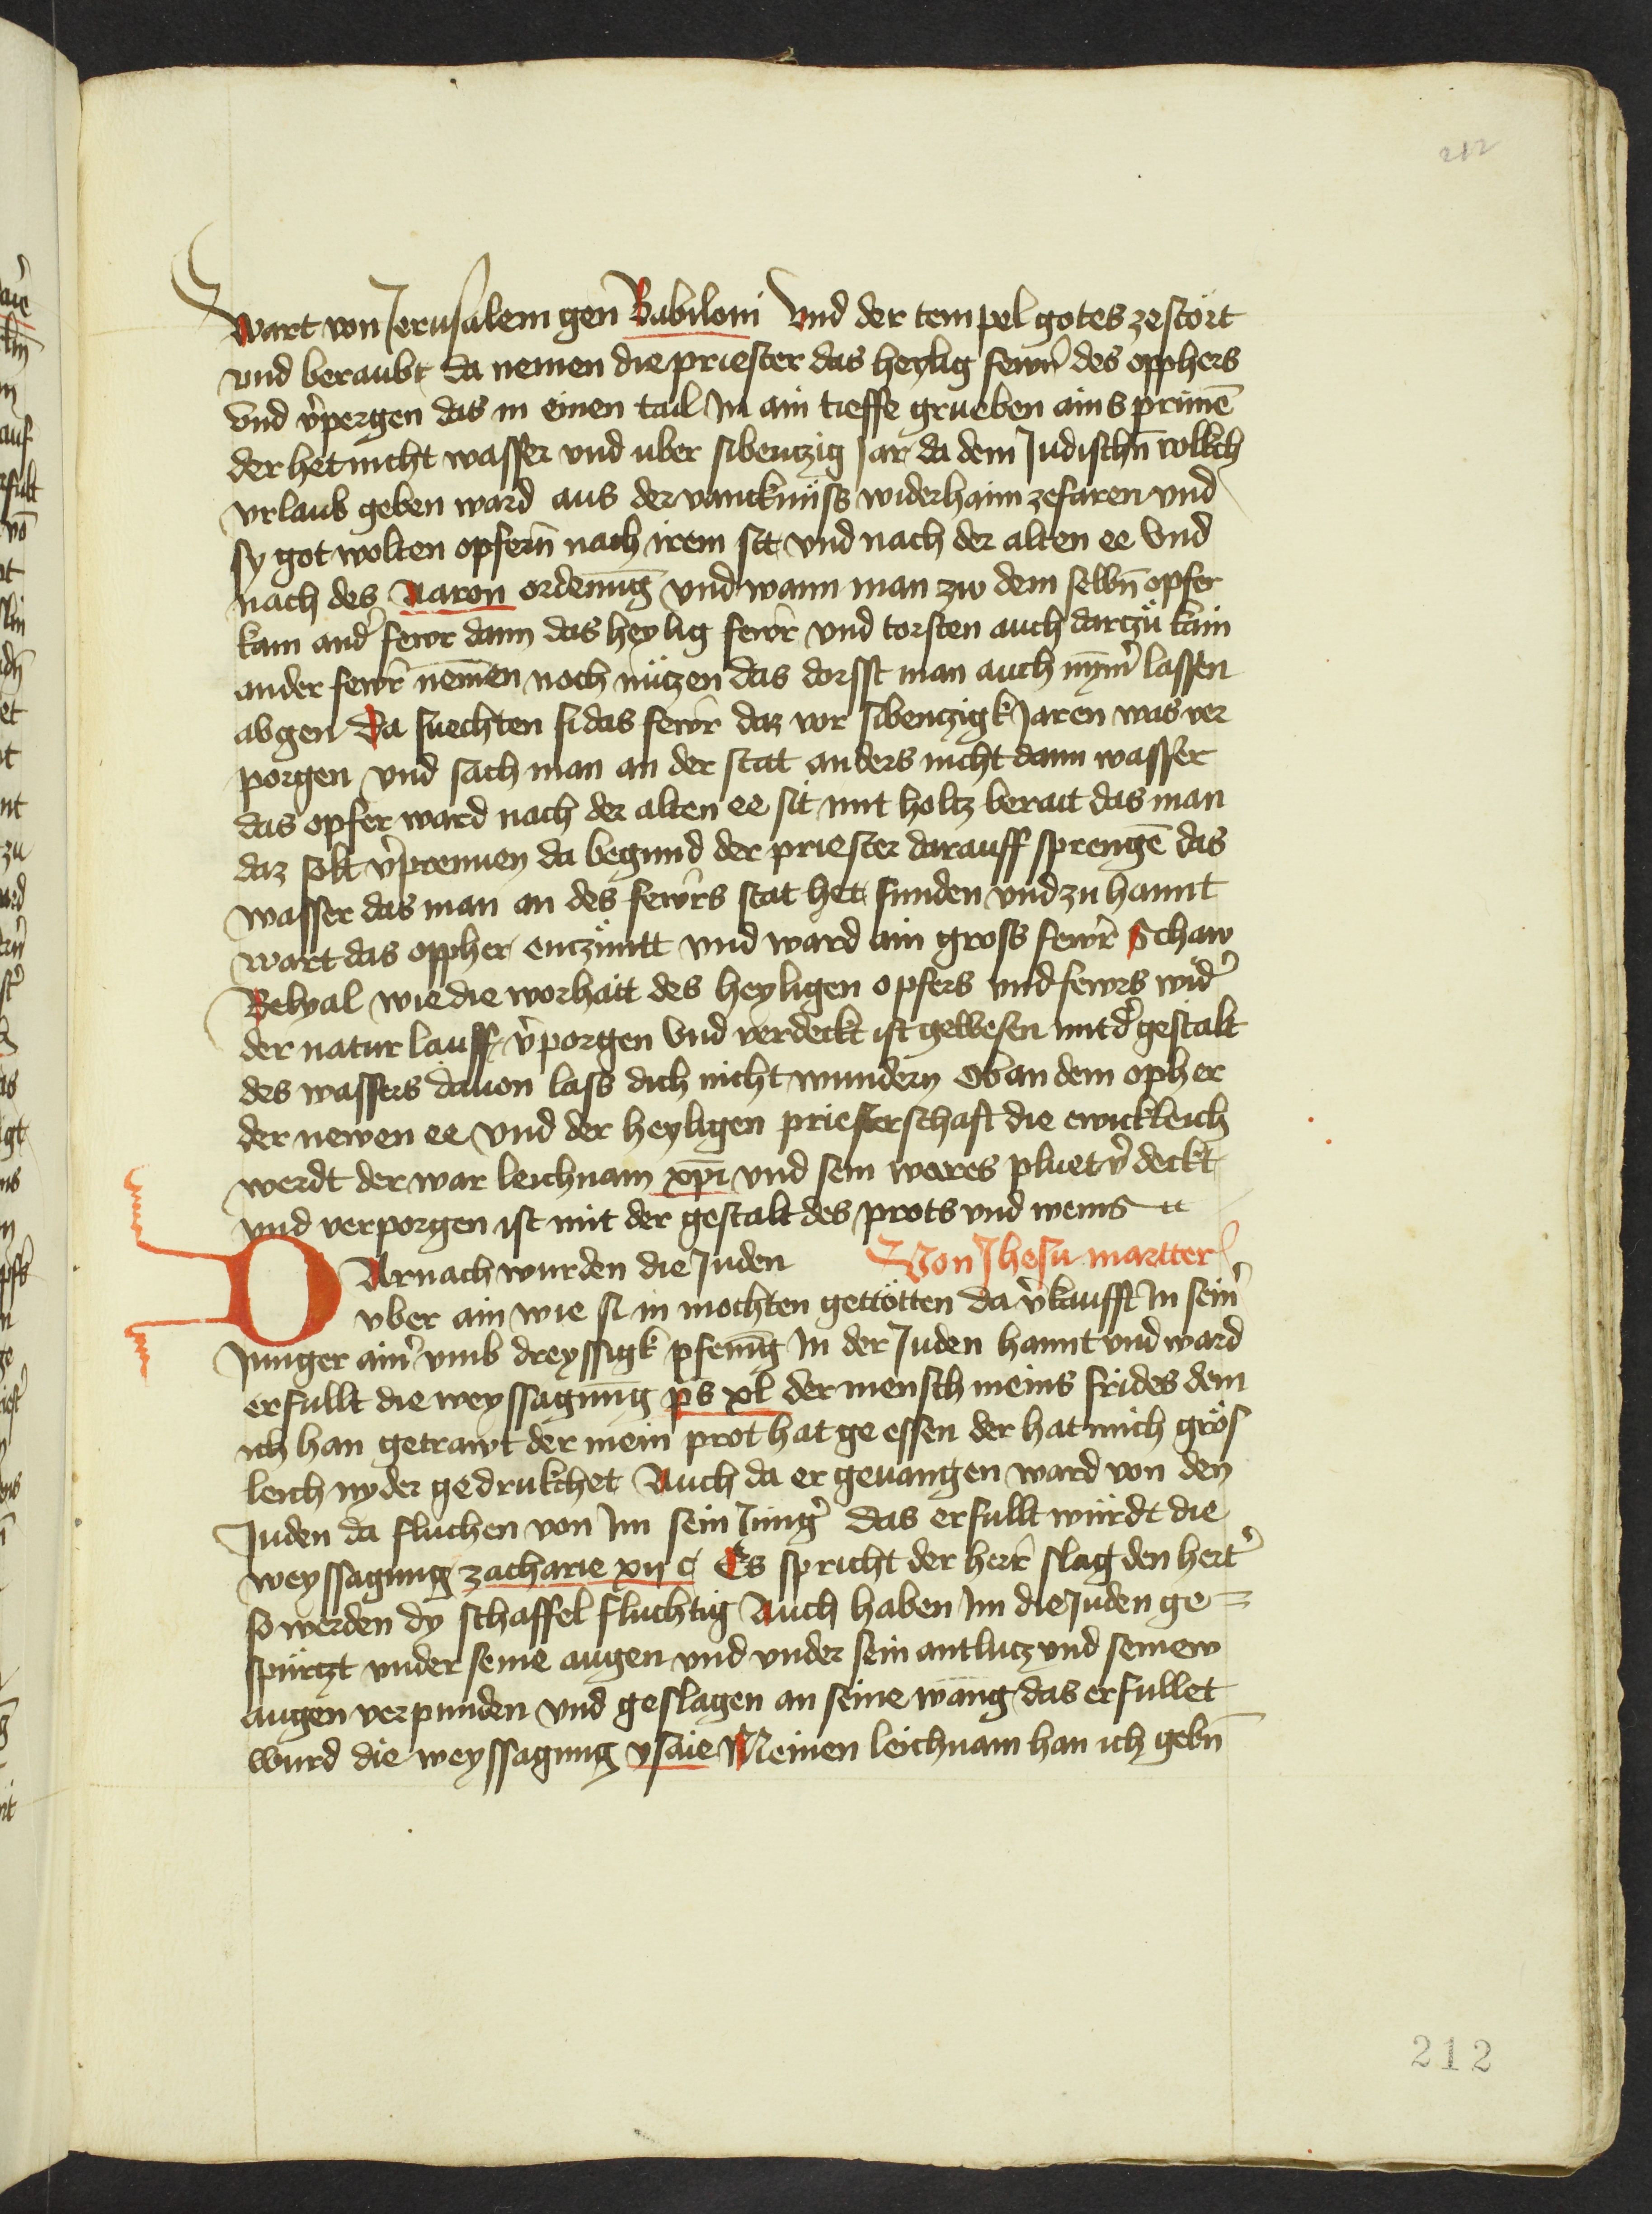 212
wart von Jerusalem gen Babiloni Vnd der tempel gotes zestört
vnd beraubt da nemen die priester das heylig fewr̄ des opphers
vnd v̾pergen das in einen tail In ain tieffe grueben ains prūnē
der het nicht wasser vnd uber sibentzig Jar da dem Judischn̄ volkch
vrlaub geben ward aus der vanckнüss widerhaim zefaren vnd
sy got wolten opfern̄ nach irem sit vnd nach der alten ee Vnd
nach des Aaron ordenūg vnd wann man zw dem selbn̄ opfer
kam and̾ fewr dann das heylig fewr̄ vnd torsten auch dartzü kain
ander fewr̄ nemen noch nützen das dorsst man auch nym̄̾ lassen
abgen Da suechten si das fewr̄ daz vor sibentzigk Jaren was ver
porgen vnd sach man an der stat anders nicht dann wasser
das opfer ward nach der alten ee sit mit holtz berait das man
daz solt v̾prennen da begund der priester darauff sprengē das
wasser das man an des fewr̄s stat het funden vnd zu hannt
wart das oppher entzüntt vnd ward ain gross fewr̄ Schaw
Belyal wie die worhait des heyligen opfers vnd fewrs wid̾
der natur lauff v̾porgen Vnd verdeckt ist gewesen mit d̾ gestalt
des wassers dauon lass dich nicht wundern Ob an dem opher
der newen ee Vnd der heyligen priesterschaft die ewickleich
werdt der war leichnam xp̄i vnd sein wares pluet v̾deckt
vnd verporgen ist mit der gestalt des prots vnd weins
DArnach wurden die Juden Von Jhesu martter
vber ain wie si in mochten gettötten da v̾kaufft In sein̾
Junger ain̾ vmb dreyssigk pfenīg In der Juden hannt vnd ward
erfullt die weyssagung ps xl der mensch meins frides dem
ich han getrawt der mein prot hat ge essen der hat mich grös
leich nyder gedrukchet Auch da er geuangen ward von den
Juden da fluchen von Im sein Jüng̾ das erfullt würdt die
weyssagung zacharie xij c Es spricht der herr̄ slag den hert̾
so werden dy schaffel fluchtig Auch haben Im die Juden ge=
spürtzt vnder seine augen vnd vnder sein antlutz vnd seinew
augen verpunden vnd geslagen an seine wang das erfullet
wurd die weyssagung ysaie Meinen leichnam han ich gebn̄
212